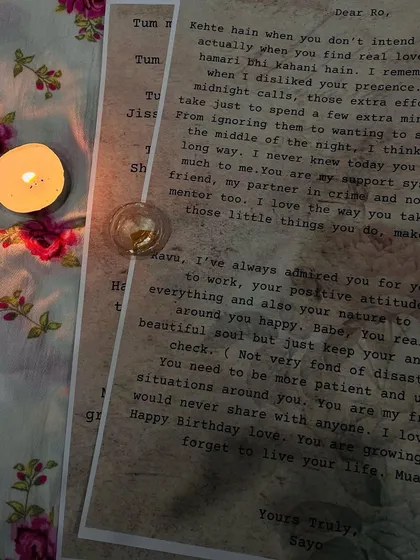 Dear Ro,
Kehte hain when you don't intend
actually when you find real lov
hamari bhi kahani hain. I remem
when I disliked your presence.
midnight calls, those extra eff
take just to spend a few extra min
From ignoring them to wanting to s
the middle of the night, I think
long way. I never knew today you
much to me.You are my support sy
friend, my partner in crime and no
mentor too. I love the way you tak
those little things you do, make
Ravu, I've always admired you for y
to work, your positive attitude
everything and also your nature to
around you happy. Babe, You rea
beautiful soul but just keep your an
check. ( Not very fond of disast
You need to be more patient and u
situations around you. You are my fr
would never share with anyone. I lo
Happy Birthday love. You are growing
forget to live your life. Mua
Yours Truly,
Sayo
Tum m
Tum
Tu
Jiss
Sh
Ha
t
gr